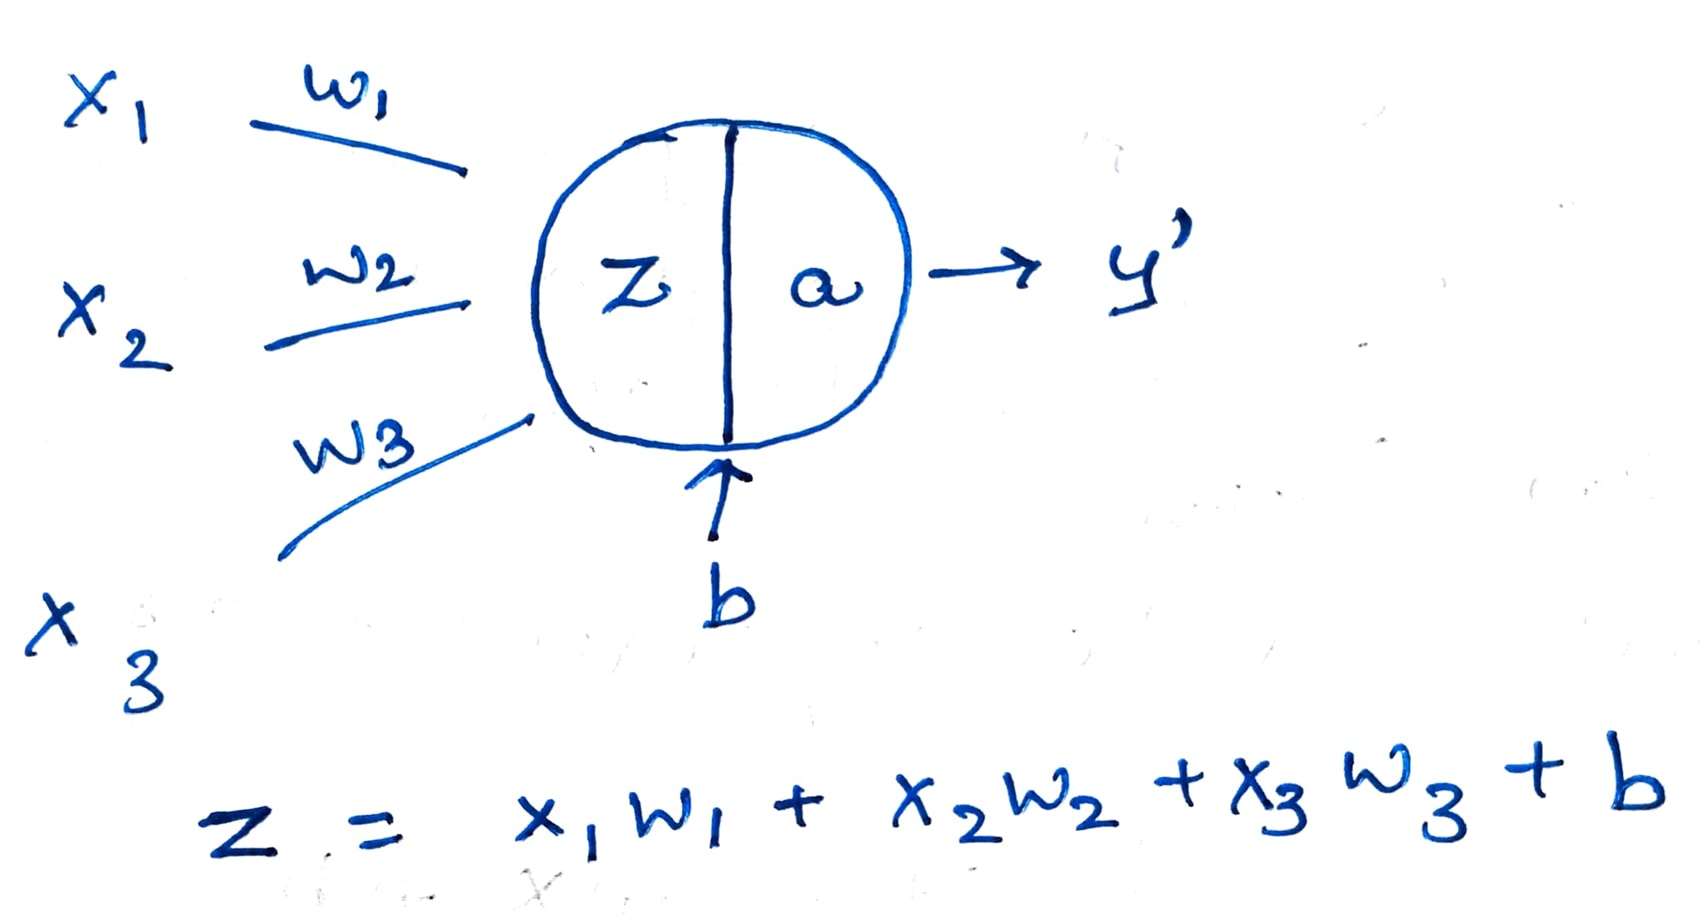 x1 w1
x2 w2
z a → y'
w3
x3
b
z = x1w1 + x2w2 + x3w3 + b